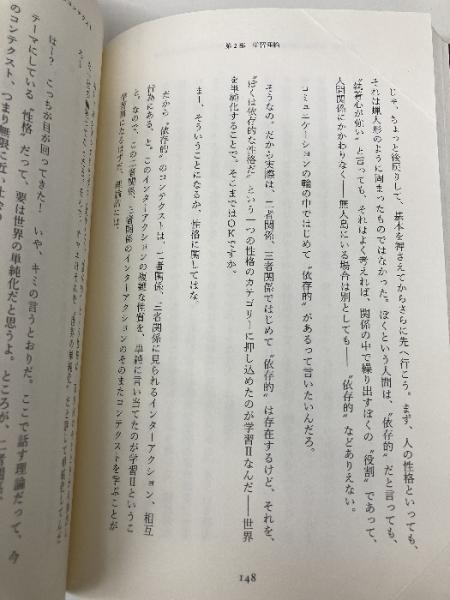 第2部 学習理論
じゃ、ちょっと後戻りして、基本を押さえてからさらに先へ行こう。まず、人の性格といっても、
それは蝋人形のように固まったものではなかった。ぼくという人間は、〝依存的〟だと言っても、
〝競争心が強い〟と言っても、それはよく考えれば、関係の中で繰り出すぼくの〝役割〟であって、
人間関係にかかわりなく——無人島にいる場合は別としても——〝依存的〟などありえない。
コミュニケーションの輪の中ではじめて〝依存的〟があるって言いたいんだろ。
そうなの。だから実際は、二者関係、三者関係ではじめて〝依存的〟は存在するけど、それを、
〝ぼくは依存的な性格だ〟という一つの性格のカテゴリーに押し込めたのが学習Ⅱなんだ——世界
を単純化することで。そこまではOKですか。
まー、そういうことになるか、性格に関してはな。
だから〝依存的〟のコンテクストは、二者関係、三者関係に見られるインターアクション、相互
行為にある、と。このインターアクションの複雑な性質を、単純に言い当てたのが学習Ⅱというこ
と。なので、この二者関係、三者関係のインターアクションのそのまたコンテクストを学ぶことが
学習Ⅲになるはずだ、理論的には。
はー？ こっちが目が回ってきた！ いや、キミの言うとおりだ。ここで話す理論だって、今
テーマにしている〝性格〟だって、要は世界の単純化だと思うよ。ところが、二者関
のコンテクスト、つまり無限に近い
148